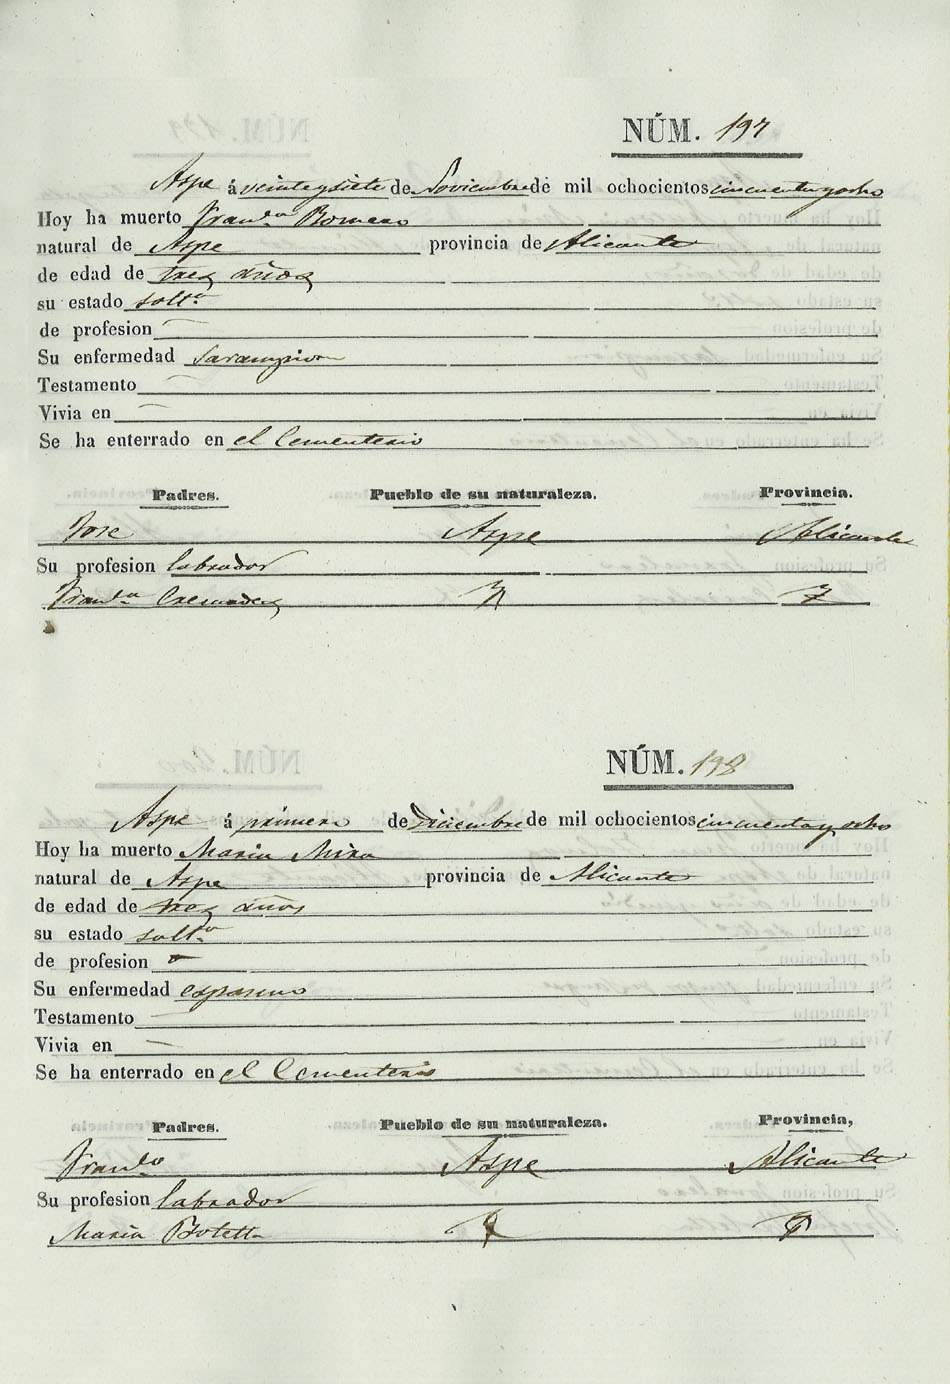 NÚM. 197
Aspe á veinteysiete de Noviembre de mil ochocientos cincuentayocho
Hoy ha muerto Franca Romero
natural de Aspe provincia de Alicante
de edad de tres años
su estado solta
de profesion —
Su enfermedad Sarampion
Testamento —
Vivia en —
Se ha enterrado en el Cementerio
Padres. Pueblo de su naturaleza. Provincia.
Jose Aspe Alicante
Su profesion labrador
Franca Cremades
NÚM. 198
Aspe á primero de Diciembre de mil ochocientos cincuentayocho
Hoy ha muerto Maria Mira
natural de Aspe provincia de Alicante
de edad de tres años
su estado solta
de profesion
Su enfermedad espasmo
Testamento —
Vivia en —
Se ha enterrado en el Cementerio
Padres. Pueblo de su naturaleza. Provincia,
Franco Aspe Alicante
Su profesion labrador
Maria Botella